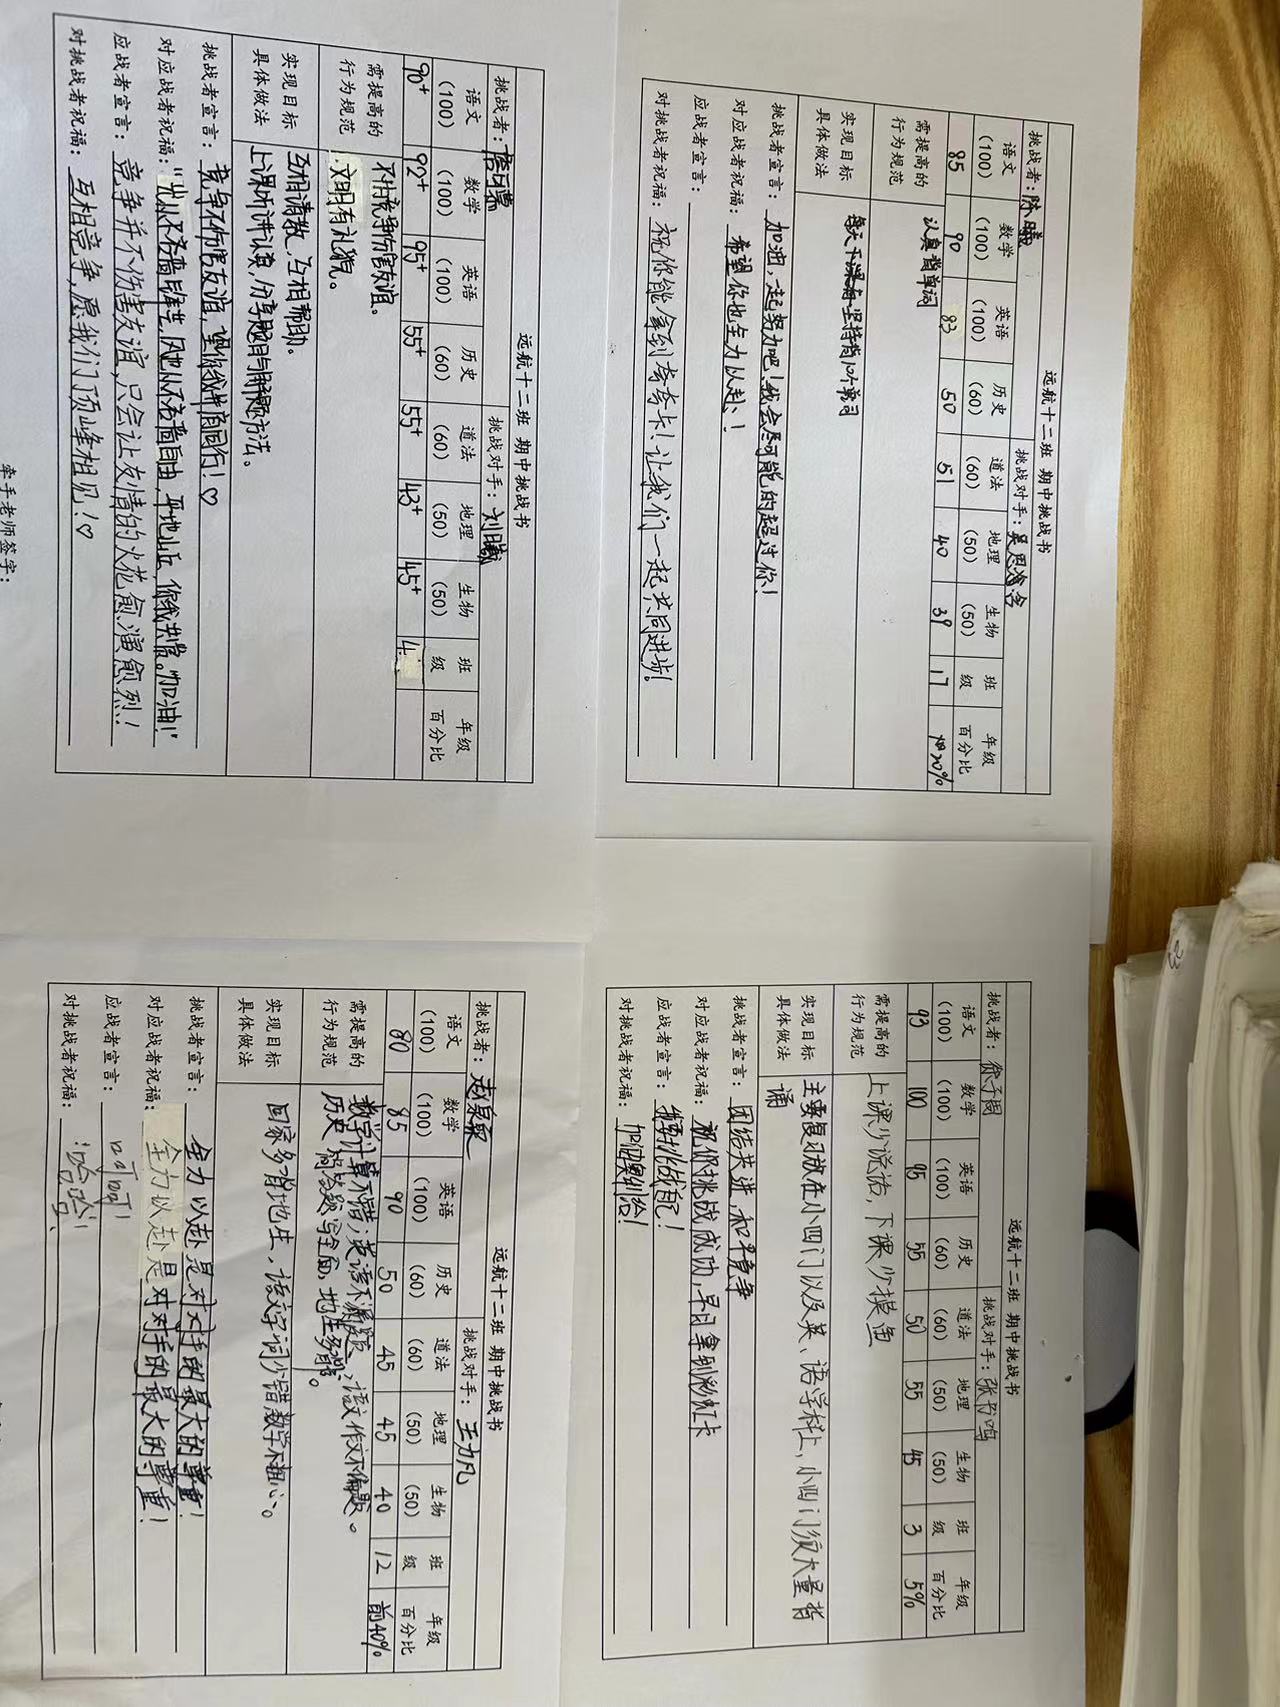 远航十二班 期中挑战书
挑战者: 挑战对手: 刘曦
语文 (100) 数学 (100) 英语 (100) 历史 (60) 道法 (60) 地理 (50) 生物 (50) 班级 年级百分比
90+ 92+ 95+ 55+ 55+ 43+ 45+ 4
需提高的行为规范 不搞竞争伤害友谊。
文明有礼貌。
实现目标具体做法 互相请教,互相帮助。
上课听讲认真,分享题目与解题方法。
挑战者宣言: 竞争不伤害友谊,望你我并肩同行!♡
对应战者祝福: 加油!"
应战者宣言: 竞争并不伤害友谊,只会让友情的火花愈演愈烈!
对挑战者祝福: 互相竞争,愿我们顶峰相见!♡
牵手老师签字:
远航十二班 期中挑战书
挑战者: 陈曦 挑战对手: 吴思含
语文 (100) 数学 (100) 英语 (100) 历史 (60) 道法 (60) 地理 (50) 生物 (50) 班级 年级百分比
85 90 83 50 51 40 39 17 20%
需提高的行为规范 认真背单词
实现目标具体做法 每天下课后坚持背10个单词
挑战者宣言: 加油,一起努力吧!我会尽可能的超过你!
对应战者祝福: 希望你也全力以赴!
应战者宣言:
对挑战者祝福: 祝你能拿到夸夸卡!让我们一起共同进步!
远航十二班 期中挑战书
挑战者: 赵泉 挑战对手: 王力凡
语文 (100) 数学 (100) 英语 (100) 历史 (60) 道法 (60) 地理 (50) 生物 (50) 班级 年级百分比
80 85 90 50 45 45 40 12 前40%
需提高的行为规范 数学计算不错;英语不漏题;语文作文不偏题。
历史简答题写全面,地生多背。
实现目标具体做法 回家多背地生,语文字词少错数学不粗心。
挑战者宣言: 全力以赴是对对手的最大的尊重!
对应战者祝福: 全力以赴是对对手的最大的尊重!
应战者宣言: 呵呵!
对挑战者祝福: 哈哈!
远航十二班 期中挑战书
挑战者: 徐子圈 挑战对手: 张书鸣
语文 (100) 数学 (100) 英语 (100) 历史 (60) 道法 (60) 地理 (50) 生物 (50) 班级 年级百分比
93 100 95 55 50 55 45 3 5%
需提高的行为规范 上课少说话,下课少摸鱼
实现目标具体做法 主要复习放在小四门以及英、语学科上,小四门须大量背诵
挑战者宣言: 团结共进,和平竞争
对应战者祝福: 祝你挑战成功,早日拿到彩虹卡
应战者宣言: 我要挑战自己!
对挑战者祝福: 加油奥利给!